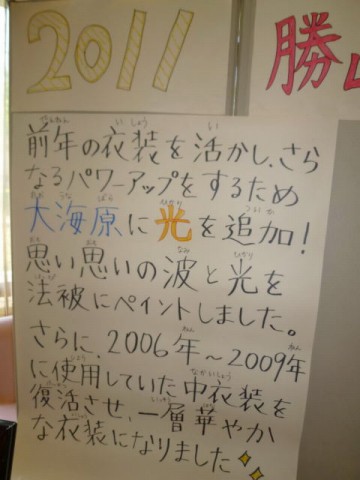 2011
勝
前年の衣装を活かし、さら
なるパワーアップをするため
大海原に光を追加!
思い思いの波と光を
法被にペイントしました。
さらに、2006年~2009年
に使用していた中衣装を
復活させ、一層華やか
な衣装になりました